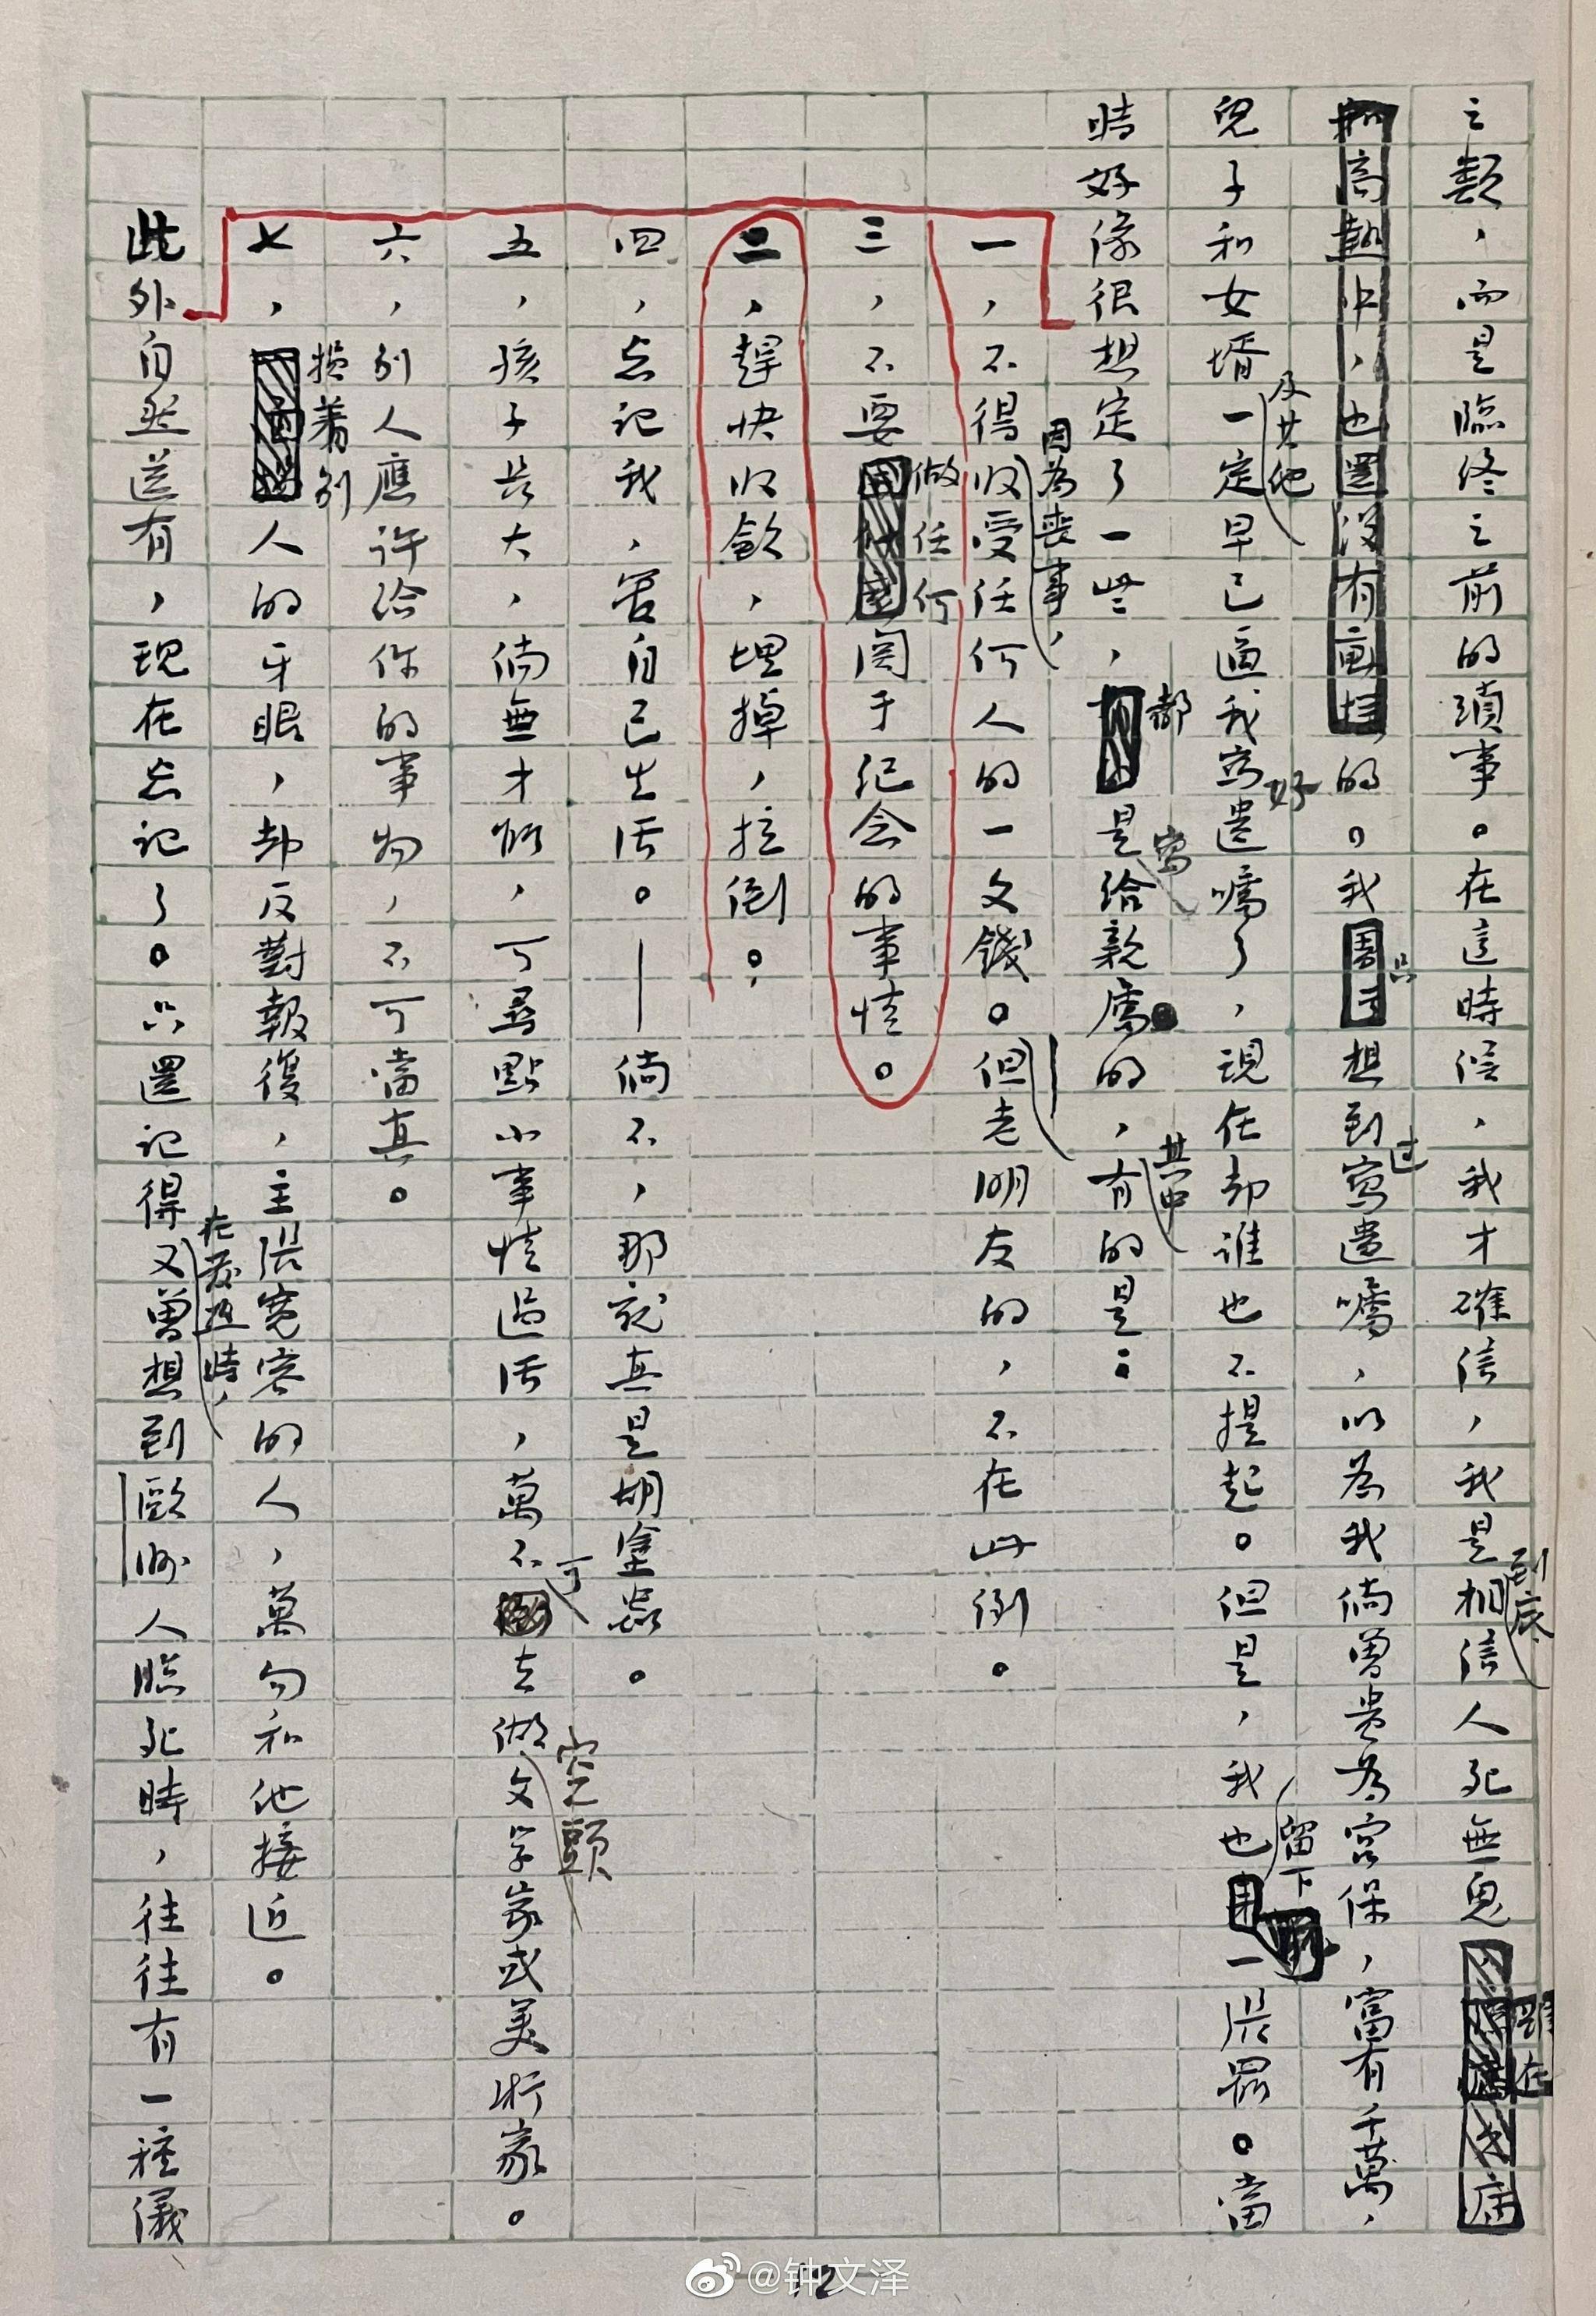 之類，而是臨終之前的瑣事。在這時候，我才確信，我是到底相信人死無鬼
的。我只想到過寫遺囑，以為我倘曾貴為宮保，富有千萬，
兒子和女壻及其他一定早已逼我寫好遺囑了，現在却誰也不提起。但是，我也留下一張罷。當
時好像很想定了一些，都是寫給親屬的，其中有的是：
一，不得因為喪事，收受任何人的一文錢。——但老朋友的，不在此例。
三，不要做任何関于纪念的事情。
二，趕快收斂，埋掉，拉倒。
四，忘記我，管自己生活。——倘不，那就真是胡塗蟲。
五，孩子長大，倘無才能，可尋點小事情過活，萬不可去做空頭文学家或美術家。
六，別人應許给你的事物，不可當真。
七，損着別人的牙眼，却反對報復，主張寬容的人，萬勿和他接近。
此外自然還有，现在忘记了。只還记得在發热時，又曾想到歐洲人臨死時，往往有一種儀
12
@钟文泽